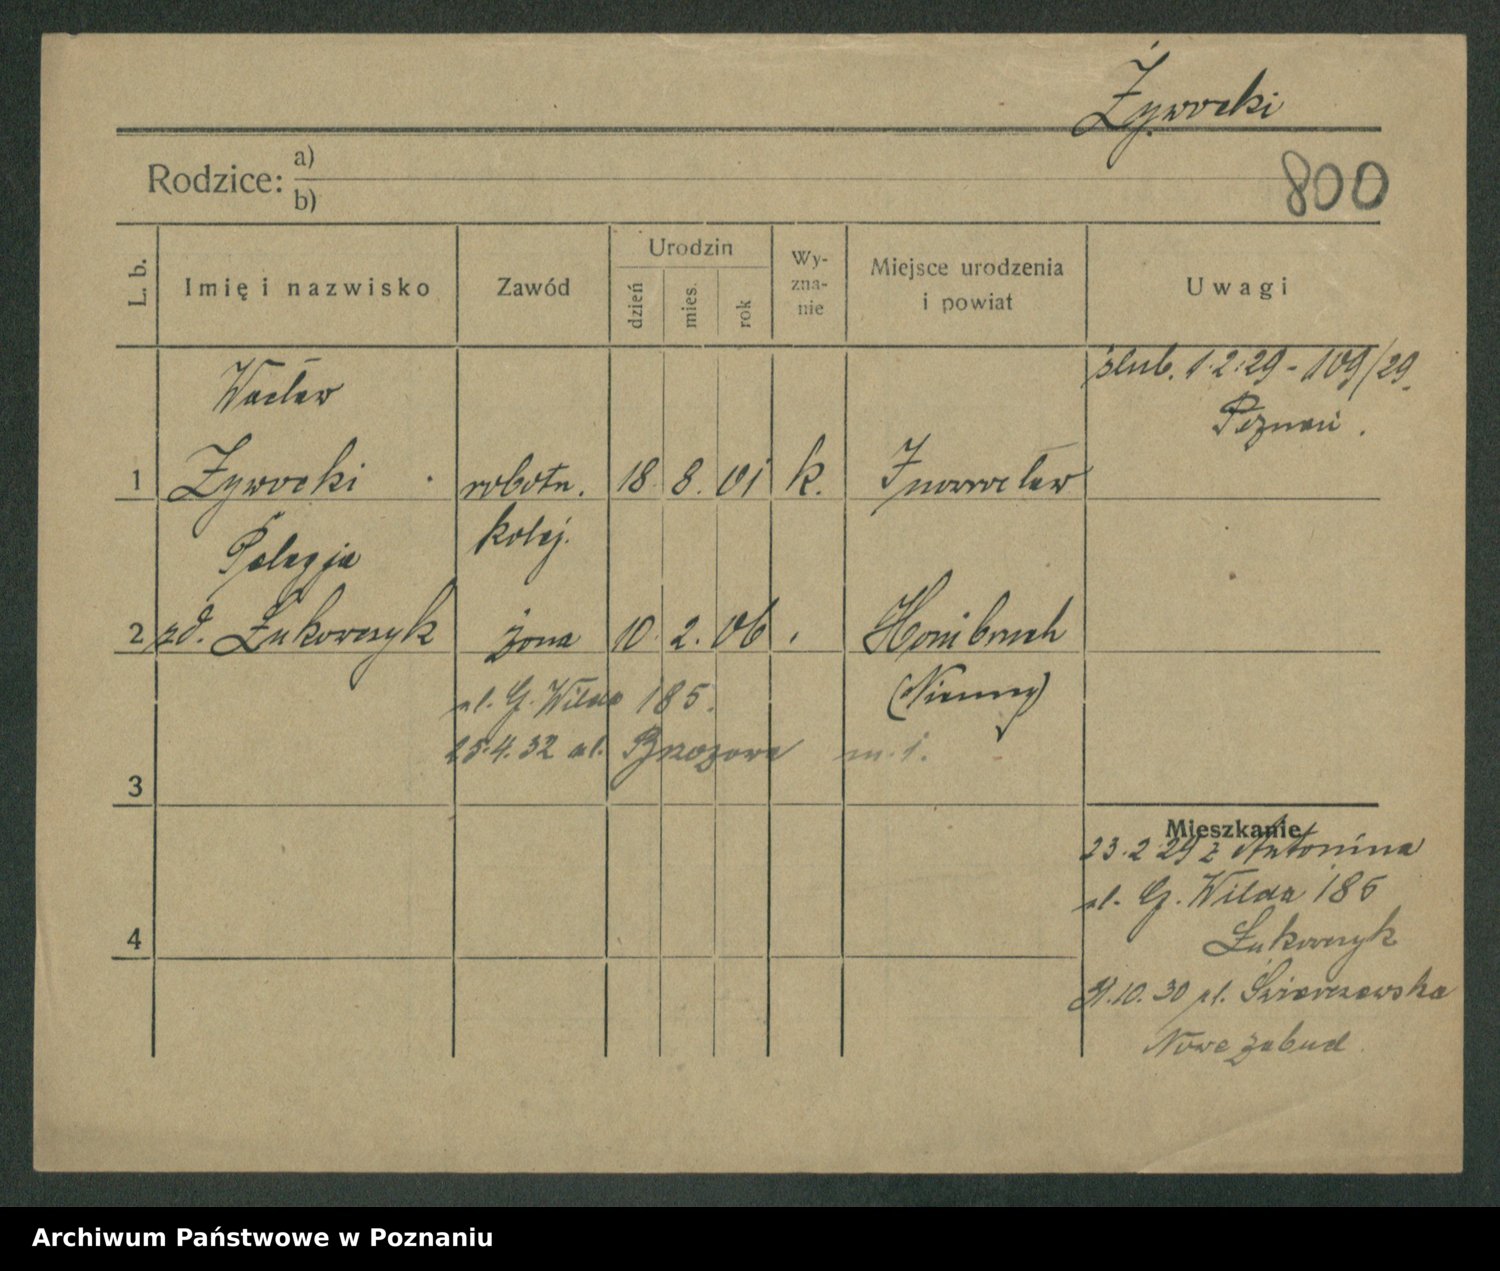 Żywocki
Rodzice: a)
b)
800
L. b. Imię i nazwisko Zawód Urodzin dzień mies. rok Wy-zna-nie Miejsce urodzenia i powiat Uwagi
ślub. 1.2.29 - 109/29
Poznań.
Wacław
1 Żywocki robotn. 18. 8. 01 k. Inowrocław
kolej.
Pelagja
2 zd. Łukowczyk żona 10. 2. 06 Honibruch
(Niemcy)
ul. G. Wilda 185.
25.4.32 ul. Brzozowa m. 1.
3
Mieszkanie
23.2.29 z Antonina
ul. G. Wilda 185
Łukowczyk
10.30 ul. Świerczewska
Nowe zabud.
4
Archiwum Państwowe w Poznaniu